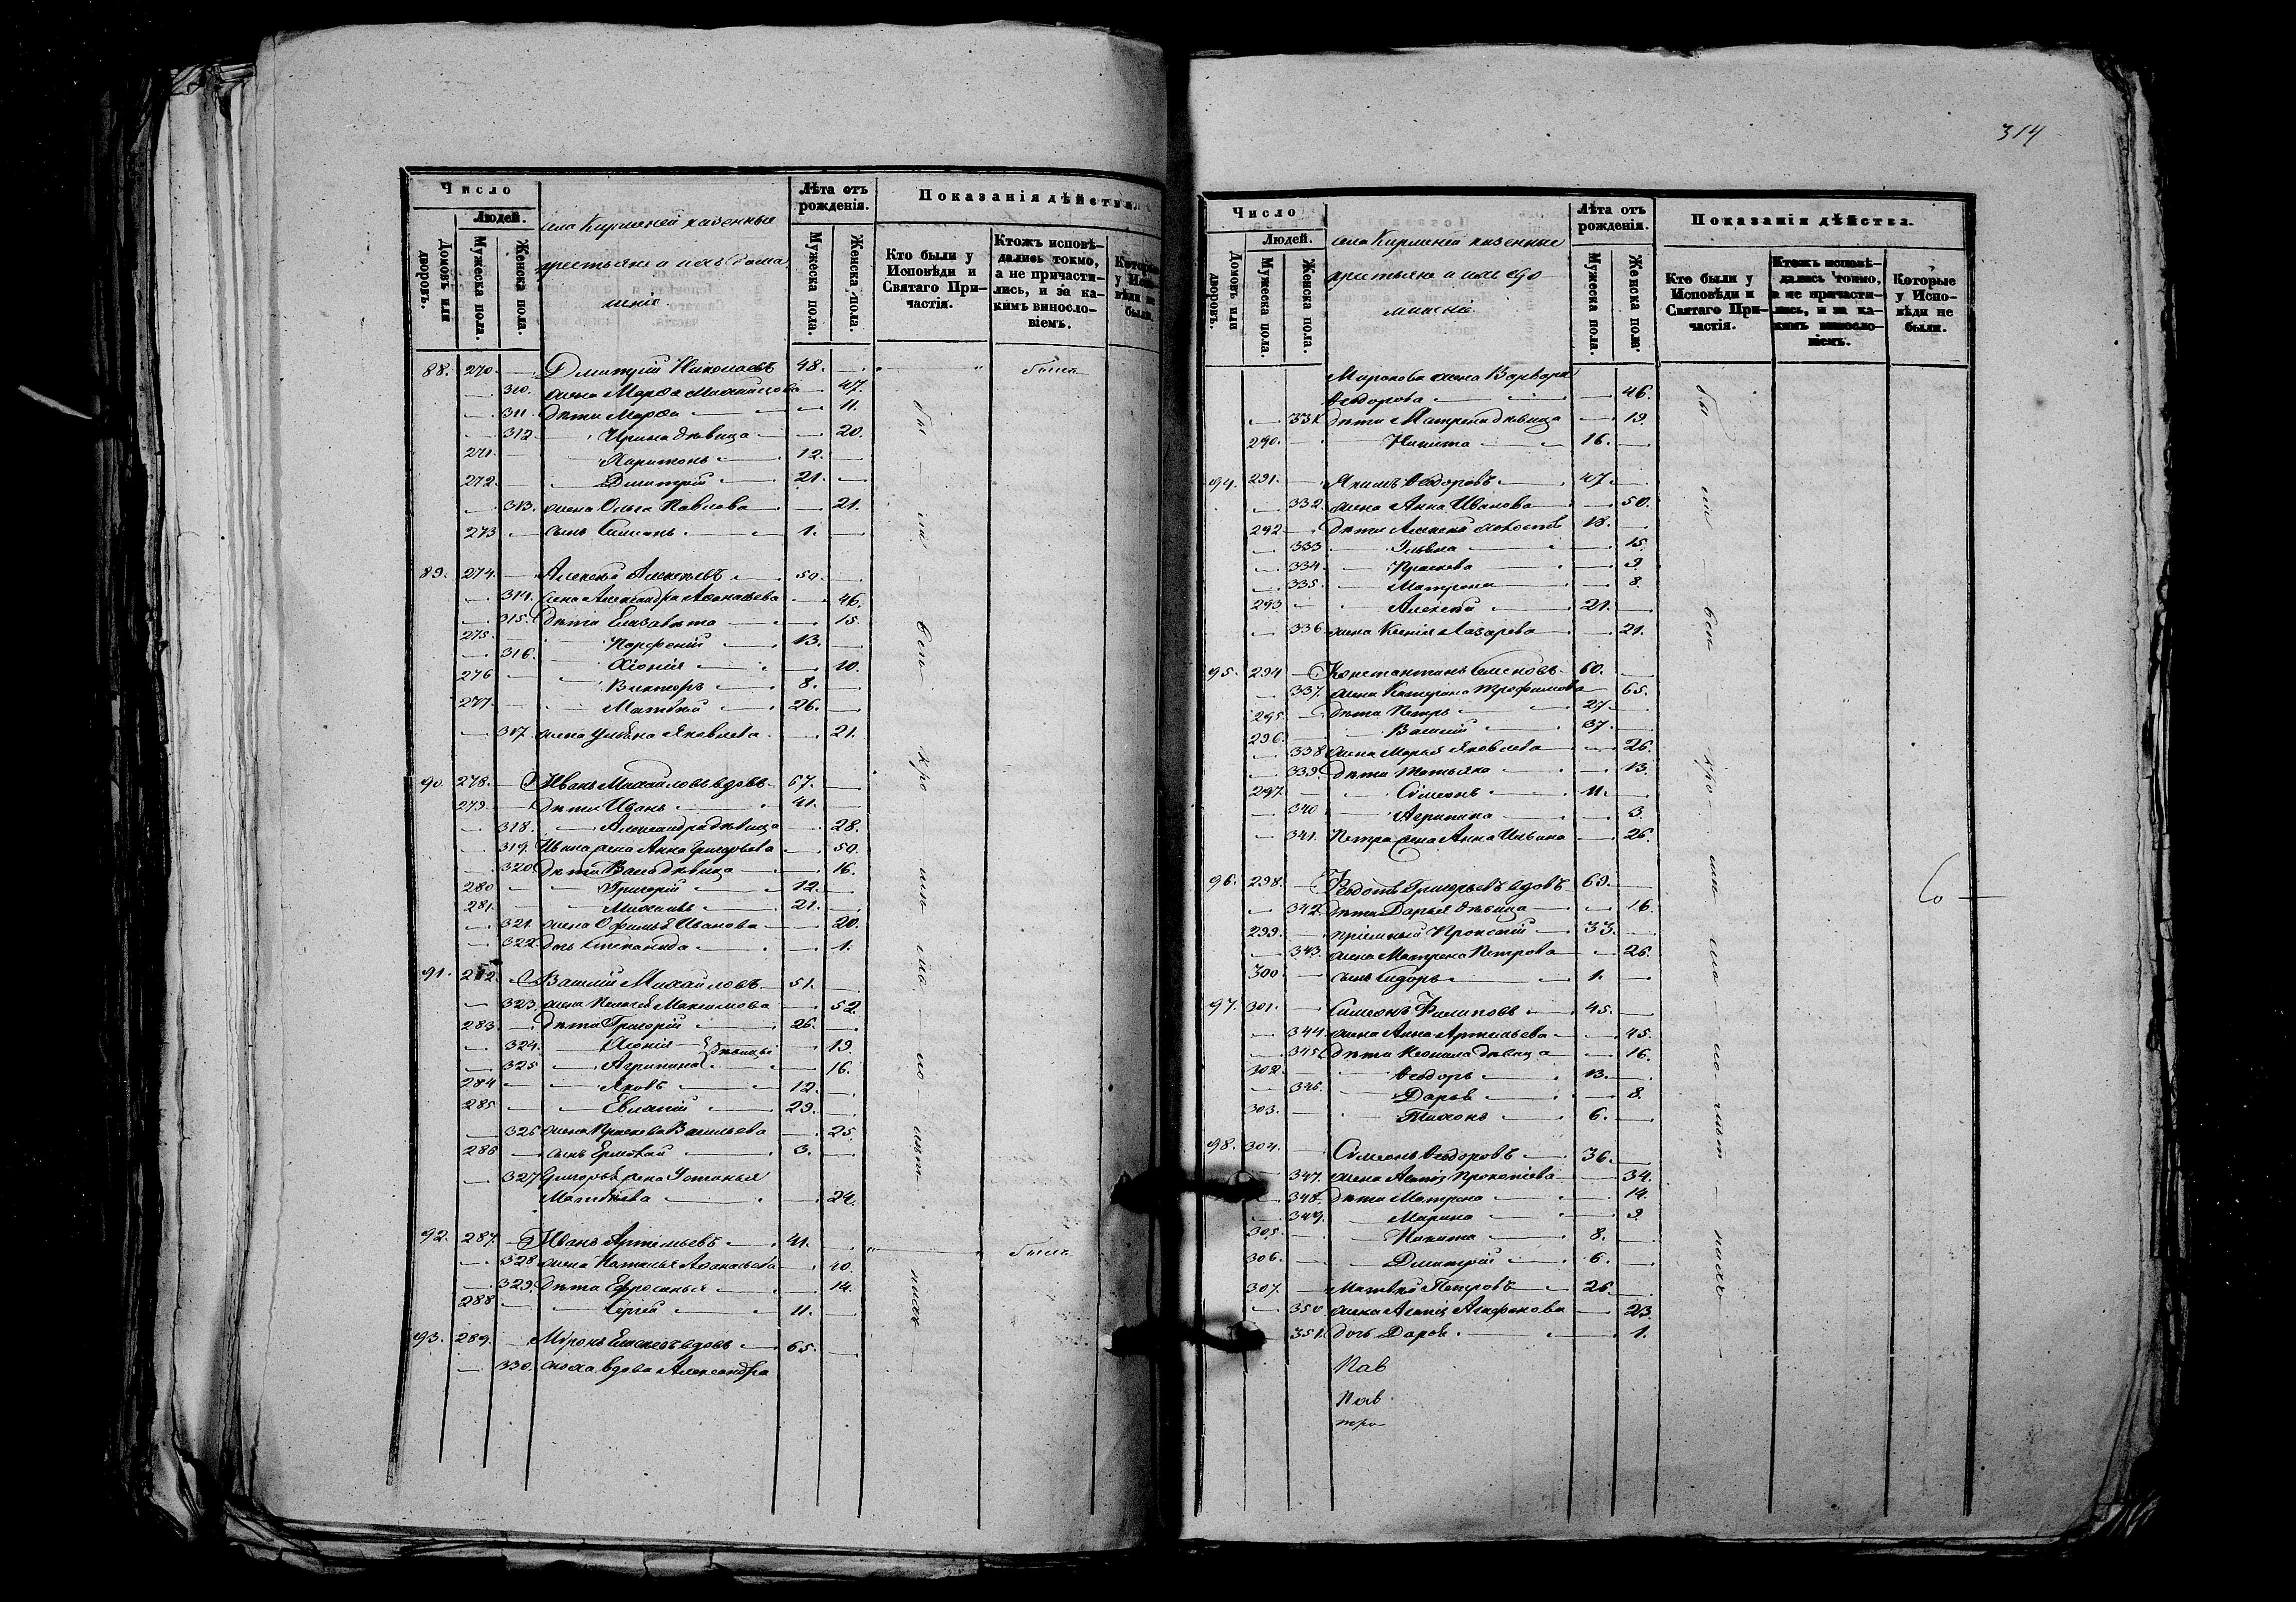 Число
Людей.
Домовъ или дворовъ.
Мужеска пола.
Женска пола.
села Кирменей казенные
крестьяне и ихъ дома
шніе.
Лѣта отъ рожденія.
Мужеска пола.
Женска пола.
Показанія дѣйства.
Кто были у Исповѣди и Святаго Причастія.
Ктожъ исповѣдались токмо, а не причастились, и за какимъ винословіемъ.
Которые у Исповѣди не были.
88. 270. — Дмитрій Николаевъ 48. — были
— 310. жена Марѳа Михайлова — 47.
— 311. дѣти Марѳа — 11.
— 312 Ирина дѣвица — 20.
271. — Харитонъ 12. —
272. — Дмитрій 21. —
— 313. жена Ольга Павлова — 21.
273 — сынъ Симеонъ 1. —
89. 274. — Алексѣй Алексѣевъ 50. —
— 314. жена Александра Аѳонасьева — 46.
— 315. дѣти Елизавета — 15.
275. — Парфеній 13. —
— 316. Хіонія — 10.
276 — Викторъ 8. —
277. — Матвѣй 26. —
— 317 жена Ульяна Яковлева — 21.
90. 278. — Иванъ Михайловъ вдовъ 67. —
279. — дѣти Иванъ 41. —
— 318. Александра дѣвица — 28.
— 319. Ивана жена Анна Григорьева — 50.
— 320 дѣти дѣвица — 16.
280 — Григорій 12. —
281. — Михаилъ 21. —
— 321. жена Офимья Иванова — 20.
— 322 дочь Степанида — 1.
91. 282. — Василій Михайловъ 51. —
— 323. жена Пелагея Максимова — 52.
283. — дѣти Григорій 26. —
— 324. Хіонія } дѣвицы — 19.
— 325 Агрипина — 16.
284 — Яковъ 12. —
285 — 29. —
— 326 жена Прасковья Васильева — 25.
286 — сынъ Ермолай 3. —
— 327 Григорья жена Устинья
Матвѣева — 24.
92. 287. — Иванъ Артемьевъ 41. — были
— 328 жена Наталья Аѳанасьева — 40.
— 329. дѣти Ефросинья — 14.
288 — Сергей 11. —
93. 289. — Миронъ вдовъ 65. —
— 330. сноха вдова Александра
бы — ли — всѣ
314
Число
Людей.
Домовъ или дворовъ.
Мужеска пола.
Женска пола.
села Кирменей казенные
крестьяне и ихъ до
машніе
Лѣта отъ рожденія.
Мужеска пола.
Женска пола.
Показанія дѣйства.
Кто были у Исповѣди и Святаго Причастія.
Ктожъ исповѣдались токмо, а не причастились, и за какимъ винословіемъ.
Которые у Исповѣди не были.
Миронова жена Варвара
Ѳеодорова — 46.
— 331 дѣти Матрена дѣвица — 19.
290. — Никита 16. —
94. 291. — Якимъ Ѳеодоровъ 47. —
— 332. жена Анна Иванова — 50.
292 — дѣти Алексей холостъ 18. —
— 333 — 15.
— 334 Прасковья — 9.
— 335. Матрона — 8.
293 — Алексѣй 21. —
— 336 жена Ксенія Лазарева — 21.
95. 294 — Константинъ Семеновъ 60. —
— 337. жена Катерина Трофимова — 65.
295 — дѣти Петръ 27. —
296. — Василій 37. —
— 338 жена Марья Яковлева — 26.
— 339. дѣти Татьяна — 13.
297. — Симеонъ 11. —
— 340 Агрипина — 3.
— 341. Петра жена Анна Ильина — 26.
96. 298. — Ѳедотъ Григорьевъ вдовъ 69. —
— 342. дѣти Дарья дѣвица — 16.
299. — пріемный 33. —
— 343. жена Матрена Петрова — 26.
300 — сынъ Сидоръ 1. —
97. 301. — Симеонъ Филиповъ 45. —
— 344 жена Анна Артемьева — 45.
— 345 дѣти Неонила дѣвица — 16.
302 — Ѳеодоръ 13. —
— 346. Дарья — 8.
303. — Тихонъ 6. —
98. 304. — Симеонъ Ѳеодоровъ 36. —
— 347. жена Прокопіева — 34.
— 348. дѣти Матрона — 14.
— 349. Марина — 9.
305. — Никита 8. —
306. — Дмитрій 6. —
307. — Матвѣй Петровъ 26. —
— 350 жена Агафонова — 23.
351. дочь Дарья — 1.
Пав
Пав
тро
бы — ли — всѣ
Со —